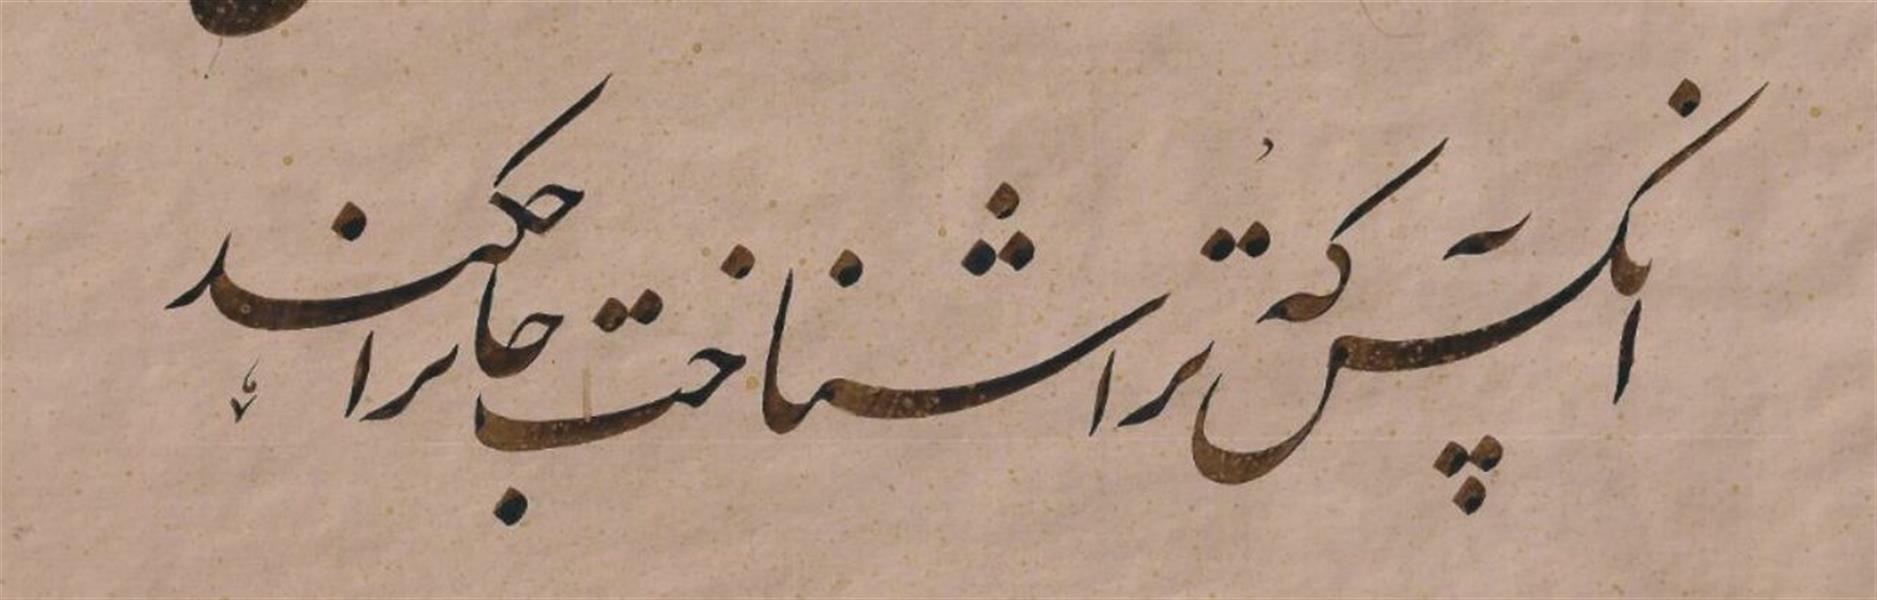 انکس که ترا شناخت جانرا چکند